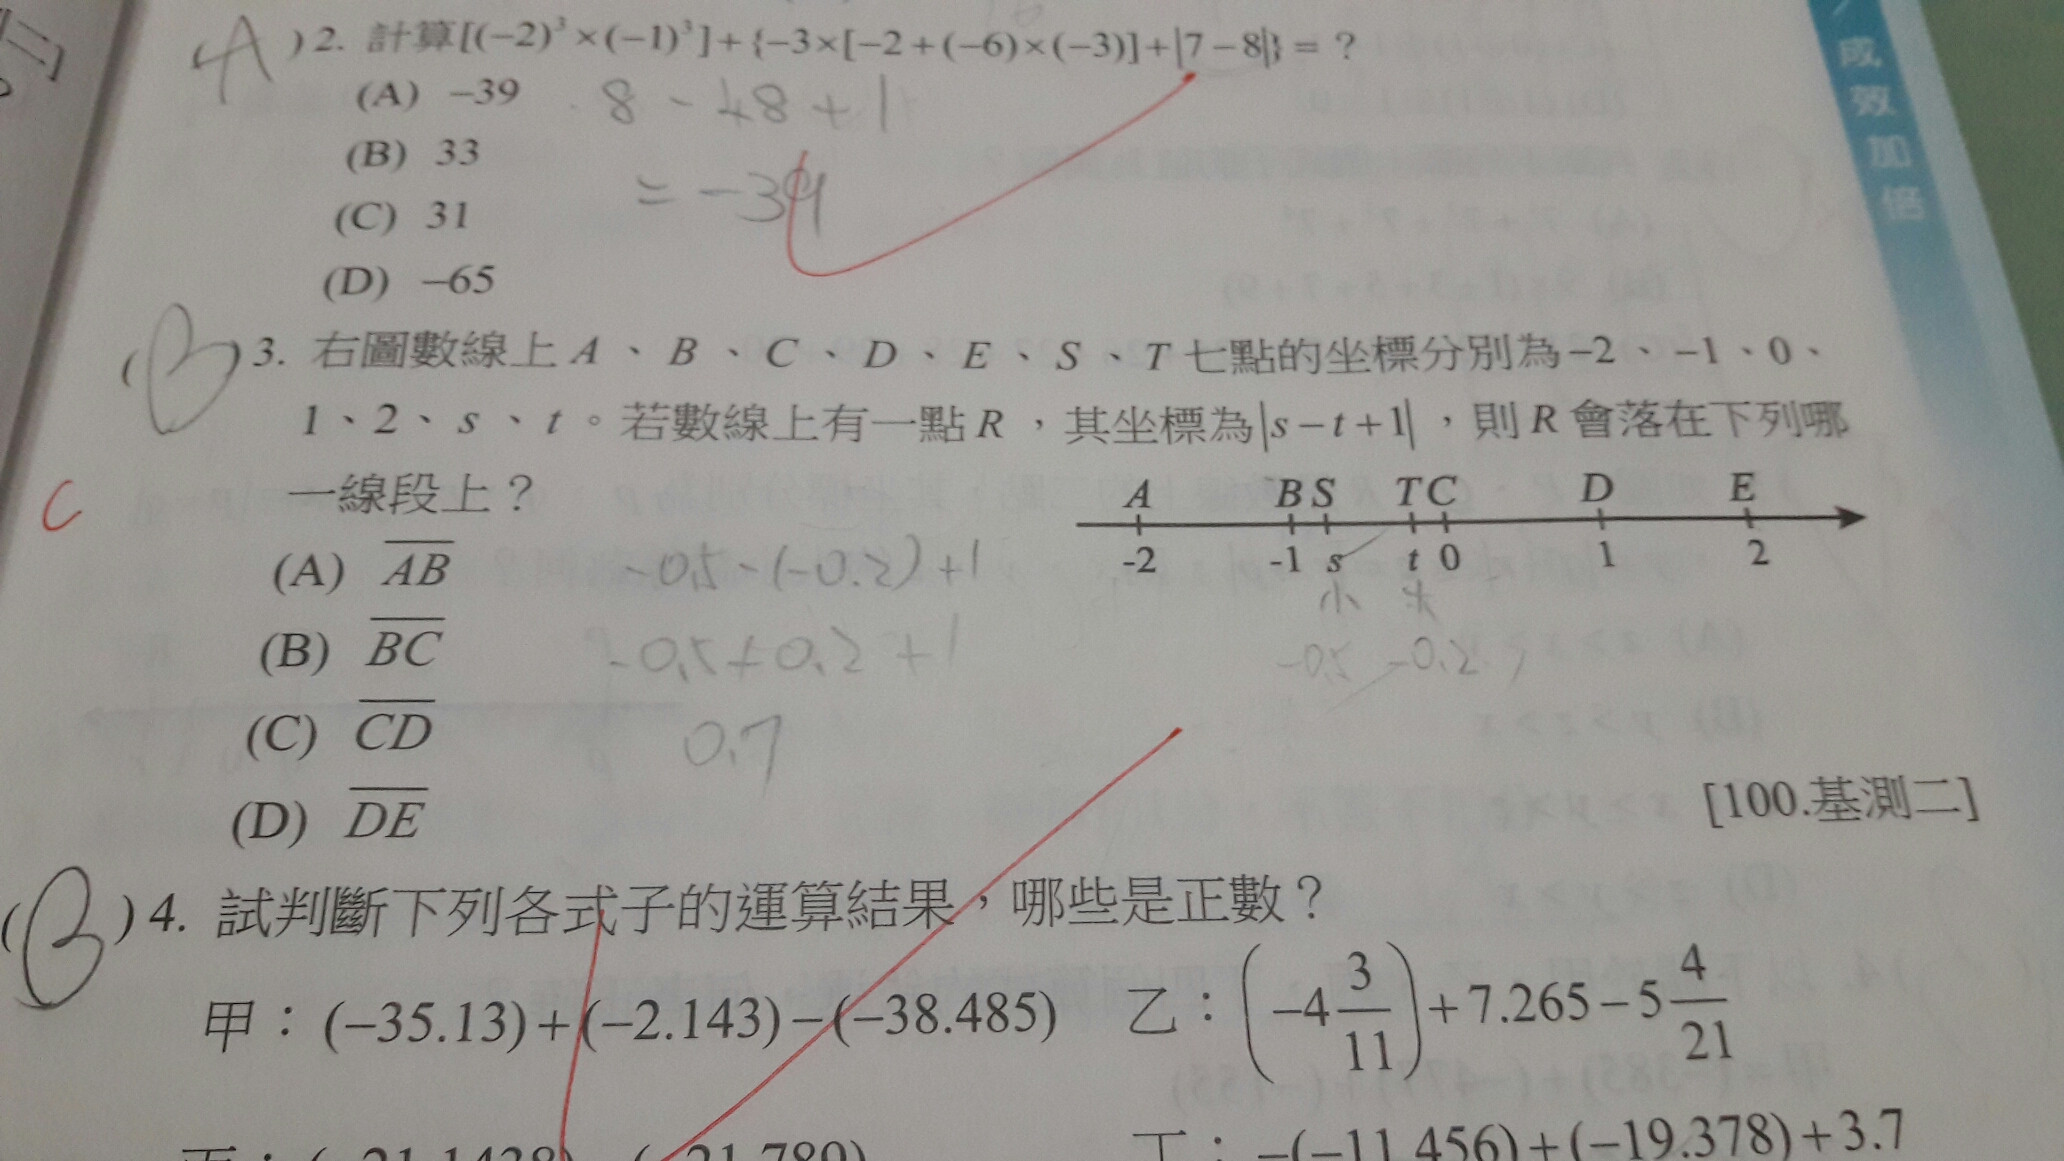 成效加倍
(A) 2. 計算[(−2)³×(−1)³]+{−3×[−2+(−6)×(−3)]+|7−8|} = ?
(A) −39
8 - 48 + 1
(B) 33
= -39
(C) 31
(D) −65
(B) 3. 右圖數線上 A、B、C、D、E、S、T 七點的坐標分別為 −2、−1、0、
1、2、s、t。若數線上有一點 R，其坐標為|s−t+1|，則 R 會落在下列哪
C
一線段上？
A B S T C D E
-2 -1 s t 0 1 2
小 大
-0.5 -0.2
(A) AB
-0.5-(-0.2)+1
(B) BC
-0.5+0.2+1
(C) CD
0.7
(D) DE
[100.基測二]
(B) 4. 試判斷下列各式子的運算結果，哪些是正數？
甲：(−35.13)+(−2.143)−(−38.485) 乙：(−4 3/11)+7.265−5 4/21
丁：−(−11.456)+(−19.378)+3.7